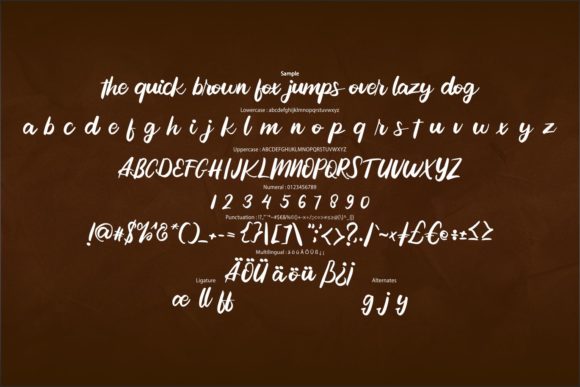 Sample
the quick brown fox jumps over lazy dog
Lowercase : abcdefghijklmnopqrstuvwxyz
a b c d e f g h i j k l m n o p q r s t u v w x y z
Uppercase : ABCDEFGHIJKLMNOPQRSTUVWXYZ
ABCDEFGHIJKLMNOPQRSTUVWXYZ
Numeral : 0123456789
1 2 3 4 5 6 7 8 9 0
Punctuation :
Multilingual : ä ö ü Ä Ö Ü ß ¿ ¡
ÄÖÜ äöü ß¿¡
Ligature
œ ll ff
Alternates
g j y